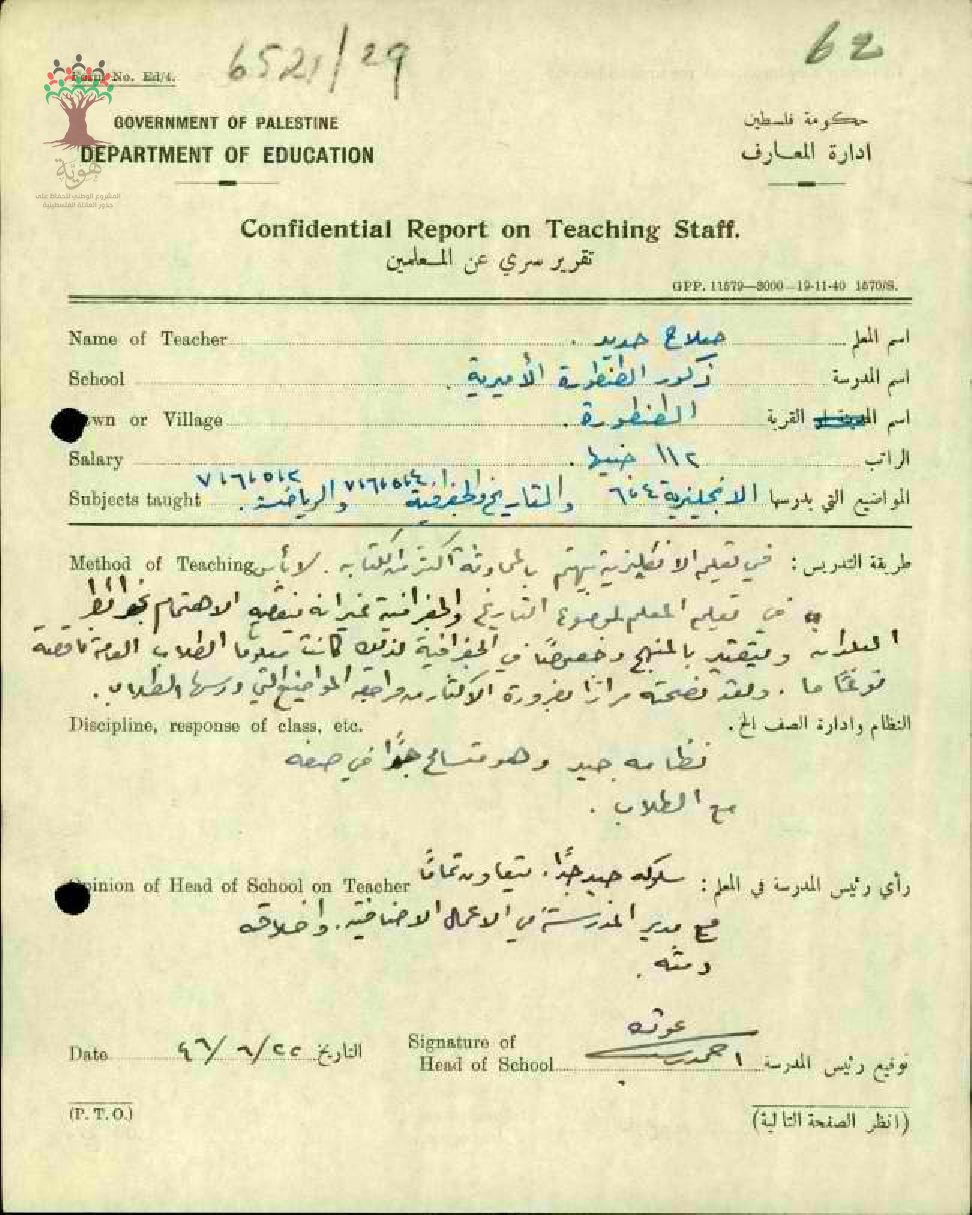 6521/29
62
Form No. Ed/4.
هويّة
المشروع الوطني للحفاظ على
جذور العائلة الفلسطينية
GOVERNMENT OF PALESTINE
حكومة فلسطين
DEPARTMENT OF EDUCATION
ادارة المعارف
Confidential Report on Teaching Staff.
تقرير سري عن المعلمين
GPP. 11579—3000—19-11-40 1570/S.
Name of Teacher صلاح حديد . اسم المعلم
School ذكور الطنطورة الأميرية . اسم المدرسة
Town or Village الطنطورة . اسم القرية
Salary ١١٢ جنيها . الراتب
Subjects taught المواضيع التي يدرسها الانجليزية ٤ و ٦ والتاريخ والجغرافية والرياضة .
Method of Teaching طريقة التدريس : في تعليم الانكليزية يهتم بالمحادثة أكثر من الكتابه . لا بأس
في تعليم المعلم لموضوع التاريخ والجغرافية غير انه ينقصه الاهتمام بخرائط
البلدان ويتقيد بالمنهج وخصوصًا في الجغرافية لذلك كانت معلومات الطلاب العامة ناقصة
نوعًا ما . ولقد نصحته مرارًا بضرورة الاكثار من مراجعة المواضيع التي درسها الطلاب .
Discipline, response of class, etc. النظام وادارة الصف الخ .
نظامه جيد وهو متسامح جدًا في صفه
مع الطلاب .
Opinion of Head of School on Teacher رأي رئيس المدرسة في المعلم : سلوكه جيد جدًا . يتعاون تمامًا
مع مدير المدرسة في الاعمال الاضافية . واخلاقه
دمثه .
Date ٢٢/٦/٤٦ التاريخ
Signature of
Head of School توقيع رئيس المدرسة
(P. T. O.)
(انظر الصفحة التالية)